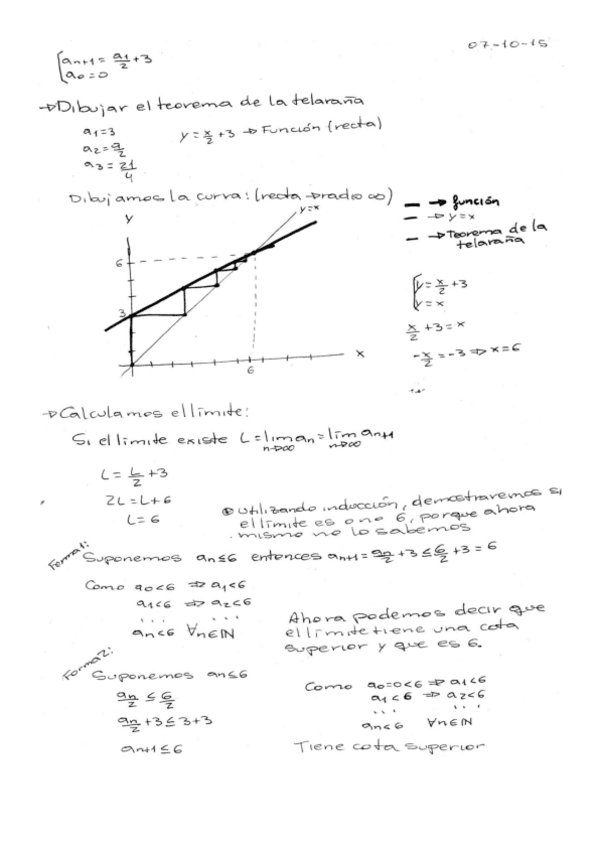 07-10-15
{an+1 = a1/2 + 3
a0 = 0
→ Dibujar el teorema de la telaraña
a1 = 3
y = x/2 + 3 → Función (recta)
a2 = 9/2
a3 = 21/4
Dibujamos la curva: (recta → radio ∞)
— → función
— → y = x
— → Teorema de la
telaraña
y
y = x
6
3
x
6
{y = x/2 + 3
y = x
x/2 + 3 = x
-x/2 = -3 ⇒ x = 6
→ Calculamos el límite:
Si el límite existe L = lim an = lim an+1
n→∞ n→∞
L = L/2 + 3
2L = L + 6
L = 6
Utilizando inducción, demostraremos si
el límite es o no 6, porque ahora
mismo no lo sabemos
Forma 1:
Suponemos an ≤ 6 entonces an+1 = an/2 + 3 ≤ 6/2 + 3 = 6
Como a0 < 6 ⇒ a1 < 6
a1 < 6 ⇒ a2 < 6
... ...
an < 6 ∀n∈ℕ
Ahora podemos decir que
el límite tiene una cota
superior y que es 6.
Forma 2:
Suponemos an ≤ 6
an/2 ≤ 6/2
an/2 + 3 ≤ 3 + 3
an+1 ≤ 6
Como a0 = 0 < 6 ⇒ a1 < 6
a1 < 6 ⇒ a2 < 6
... ...
an < 6 ∀n∈ℕ
Tiene cota superior